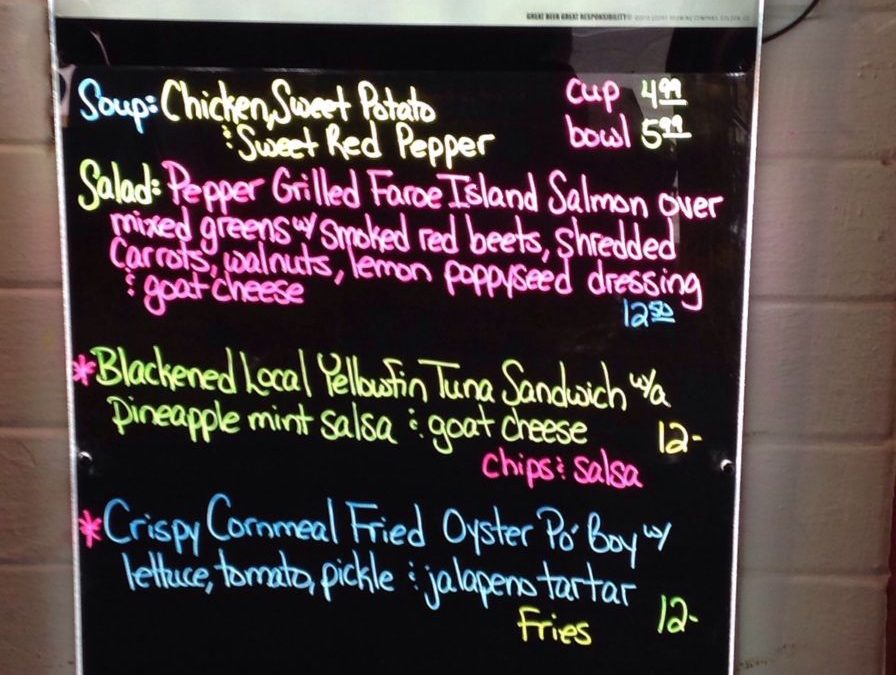 GREAT BEER GREAT RESPONSIBILITY®
Soup: Chicken, Sweet Potato cup 4.99
& Sweet Red Pepper bowl 5.99
Salad: Pepper Grilled Faroe Island Salmon over
mixed greens w/ smoked red beets, shredded
Carrots, walnuts, lemon poppyseed dressing
& goat cheese
12.50
*Blackened Local Yellowfin Tuna Sandwich w/a
pineapple mint salsa & goat cheese 12-
chips & salsa
*Crispy Cornmeal Fried Oyster Po' Boy w/
lettuce, tomato, pickle & jalapeno tartar
Fries 12-